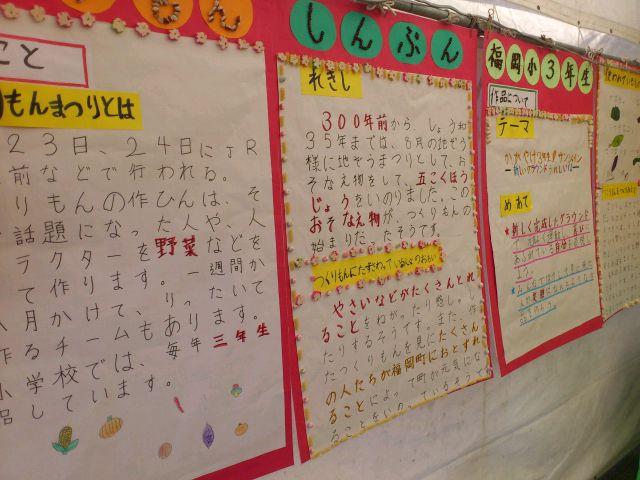 もん
こと
りもんまつりとは
23日、24日にJR
前などで行われる。
りもんの作ひんは、そ
話題になった人や、人
ラクターを野菜などを
て作ります。一週間か
月かけて、りったいて
作るチームもあります。
小学校では、毎年三年生
品しています。
しんぶん
れきし
300年前から、しょう和
35年までは、6月の地ぞう
様に地ぞうまつりとして、お
そなえ物をして、五こくほう
じょうをいのりました。この
おそなえ物が、つくりもんの
始まりだったそうです。
つくりもんにたずさわっている人々のおもい
やさいなどがたくさんとれ
ることをねがったり感しゃし
たりするそうです。また、作っ
たつくりもんを見にたくさん
の人たちが福岡町におとずれ
ることによって町が元気にな
ることをいのっているそうで
福岡小3年生
作品について
テーマ
かがやけ3年生サンシャイン
新しいグラウンドうれしいな
めあて
★新しく完成したグラウンド